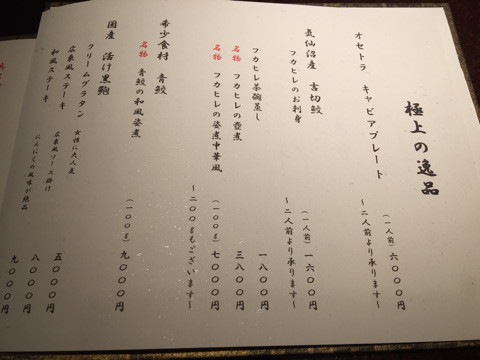 極上の逸品
オセトラ キャビアプレート (一人前) 六〇〇〇円
～二人前より承ります～
気仙沼産 吉切鮫
フカヒレのお刺身 (一人前) 一六〇〇円
～二人前より承ります～
フカヒレ茶碗蒸し 一八〇〇円
名物 フカヒレの壺煮 三八〇〇円
名物 フカヒレの姿煮中華風 (一〇〇g) 七〇〇〇円
～二〇〇gもございます～
希少食材 青鮫
名物 青鮫の和風姿煮 (一〇〇g) 九〇〇〇円
国産 活け黒鮑
クリームグラタン 女性に大人気 五〇〇〇円
広東風ステーキ 広東風ソース掛け 八〇〇〇円
和風ステーキ にんにくの風味が絶品 九〇〇〇円